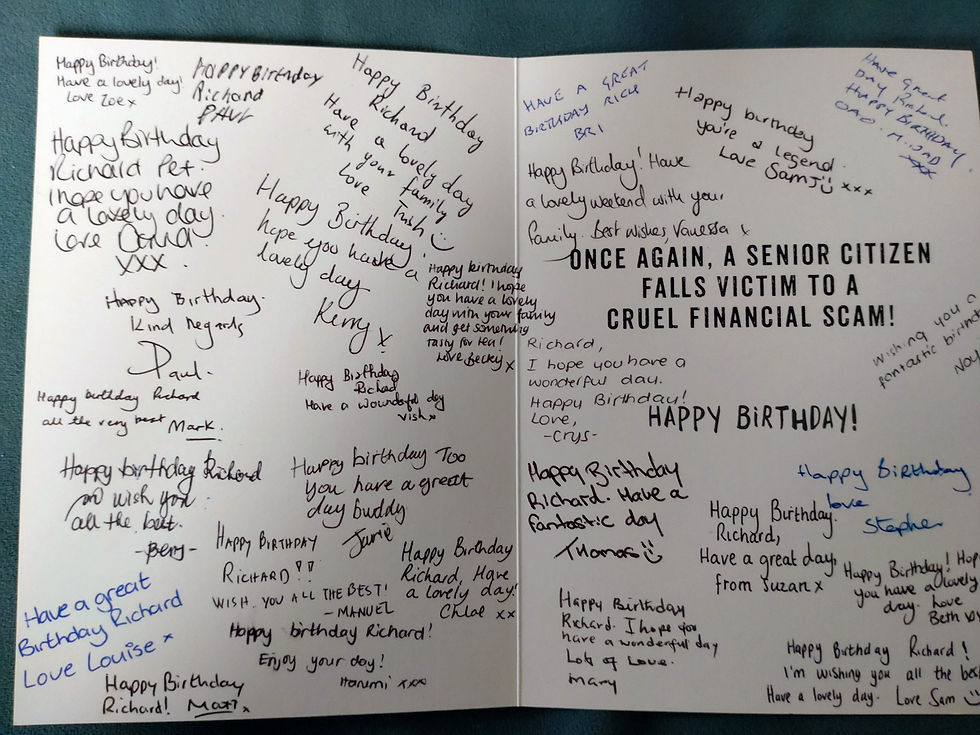 Happy Birthday!
Have a lovely day!
Love Zoe x
HAPPY BIRTHDAY
Richard
PAUL
Happy Birthday
Richard
Have a lovely day
with your family
Love Trish
Happy Birthday
Richard Pet.
I hope you have
a lovely day.
love
xxx.
Happy Birthday!
hope you have a
lovely day
Kerry x
Happy birthday
Richard! I hope
you have a lovely
day with your family
and get something
tasty for tea!
Love Becky x
Happy Birthday.
Kind regards
Paul-
Happy birthday Richard
all the very best Mark.
Happy Birthday
Richard
Have a wounderful day
Vish x
Happy birthday Richard
wish you
all the best.
-Beny-
Happy birthday Too
You have a great
day buddy
Jamie
HAPPY BIRTHDAY
RICHARD!!
WISH YOU ALL THE BEST!
- MANUEL
Happy Birthday
Richard, Have
a lovely day!
Chloe xx
Have a great
Birthday Richard
Love Louise x
Happy birthday Richard!
Enjoy your day!
Harumi xxx
Happy Birthday
Richard! Matt x
HAVE A GREAT
BIRTHDAY RICH
BRI
Happy birthday
you're a legend.
Love SamJ xxx
HAVE Great
DAY
HAPPY BIRTHDAY
xxx
Happy Birthday! Have
a lovely weekend with your
family. Best wishes, Vanessa x
ONCE AGAIN, A SENIOR CITIZEN
FALLS VICTIM TO A
CRUEL FINANCIAL SCAM!
Richard,
I hope you have a
wonderful day.
Happy Birthday!
Love,
-Crys-
Wishing you a
fantastic birth
HAPPY BIRTHDAY!
Happy Birthday
Richard. Have a
fantastic day
Thomas
Happy Birthday
love
Stephen
Happy Birthday
Richard,
Have a great day,
from Suzan x
Happy Birthday! Hop
you have a lovely
day. Love
Beth
Happy Birthday
Richard. I hope you
have a wonderful day
Lots of Love.
Mary
Happy Birthday Richard!
I'm wishing you all the bes
Have a lovely day. Love Sam